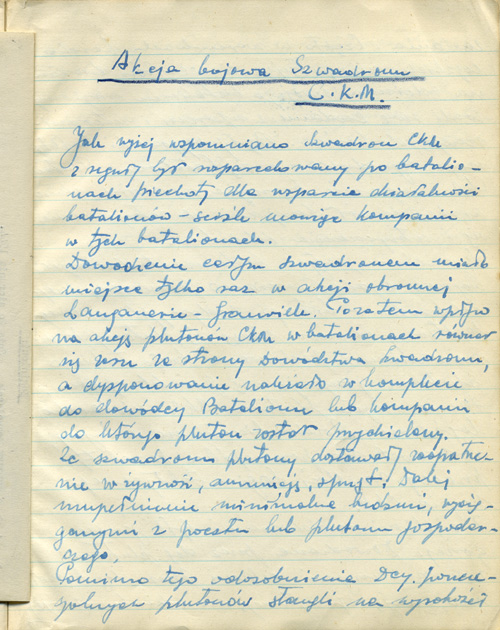 Akcja bojowa Szwadronu
C.K.M.
Jak wyżej wspomniano szwadron CKM
z reguły był rozparcelowany po batalio-
nach piechoty dla wsparcia działalności
batalionów – ściśle mówiąc kompanii
w tych batalionach.
Dowodzenie całym szwadronem miało
miejsce tylko raz w akcji obronnej
Langannerie – Grainville. Pozatem wpływ
na akcję plutonów CKM w batalionach równał
się zeru ze strony Dowództwa szwadronu,
a dysponowanie należało w komplecie
do dowódcy Batalionu lub kompanii
do którego pluton został przydzielony.
Ze szwadronu plutony dostawały zaopatrze-
nie w żywność, amunicję, sprzęt. Dalej
uzupełnienie minimalne ludźmi, wycią-
ganymi z pocztu lub plutonu gospodar-
czego.
Pomimo tego odosobnienia Dcy. poszcze-
gólnych plutonów stanęli na wysokości